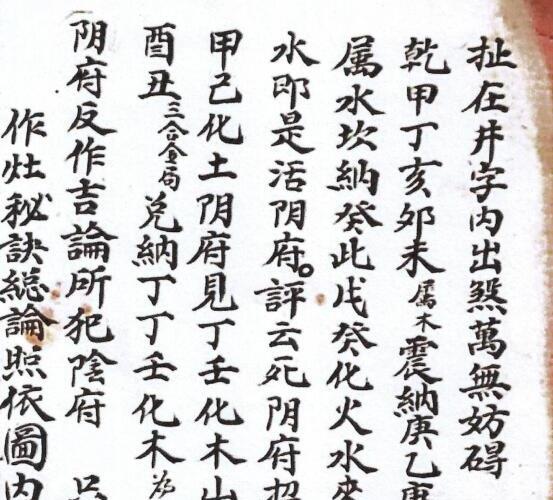 扯在井字内出煞萬無妨碍
乾甲丁亥夘未属木震納庚乙庚
属水坎納癸此戊癸化火水來
水即是活阴府。評云死阴府招
甲己化土阴府見丁壬化木山
酉丑三合金局兑納丁丁壬化木為
阴府反作吉論所犯陰府
作灶秘訣総論照依圖内